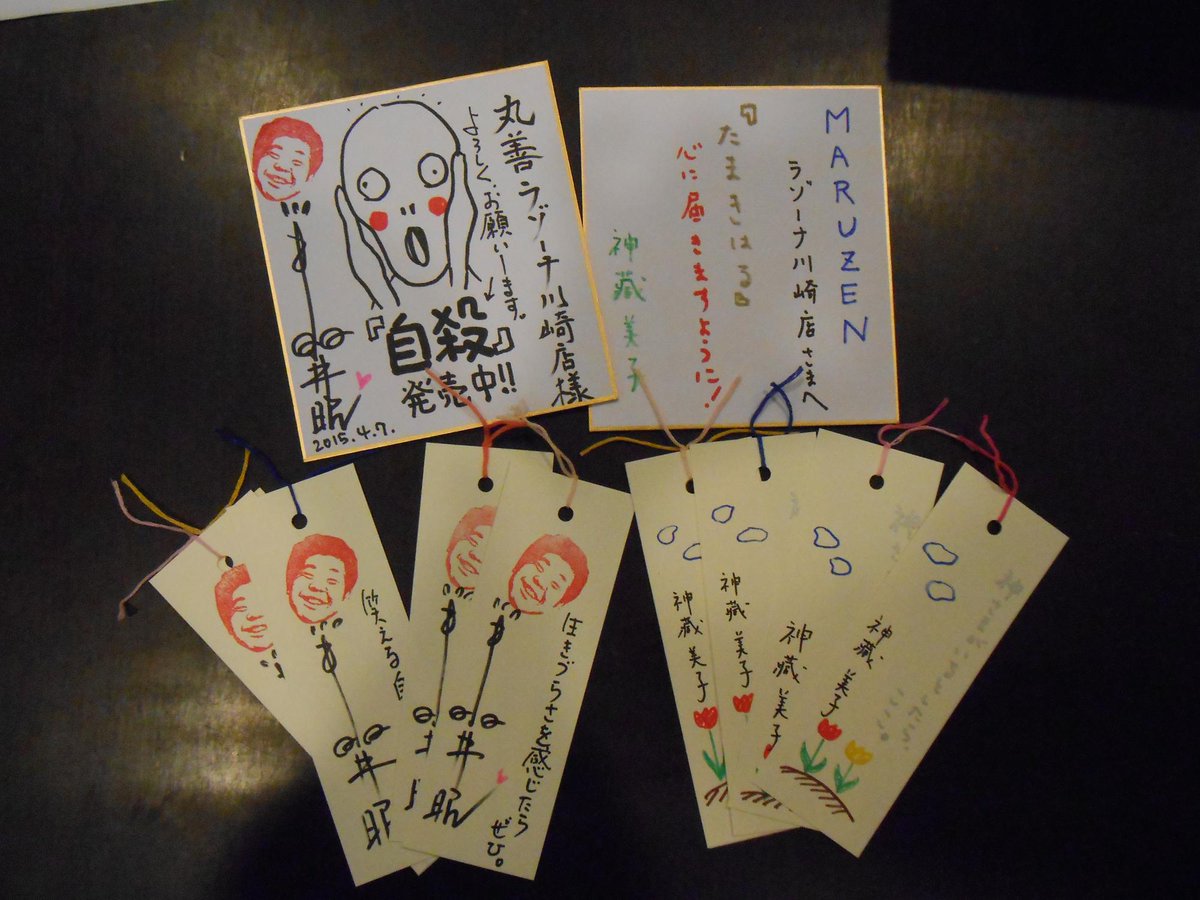 丸善ラゾーナ川崎店様
よろしくお願いします。
『自殺』
発売中!!
井
2015.4.7.
MARUZEN
ラゾーナ川崎店さまへ
『たまきはる』
心に届きますように!
神藏美子
笑える自
井
井
生きづらさを感じたら
ぜひ。
井
神藏美子
神藏美子
神藏美子
神藏美子